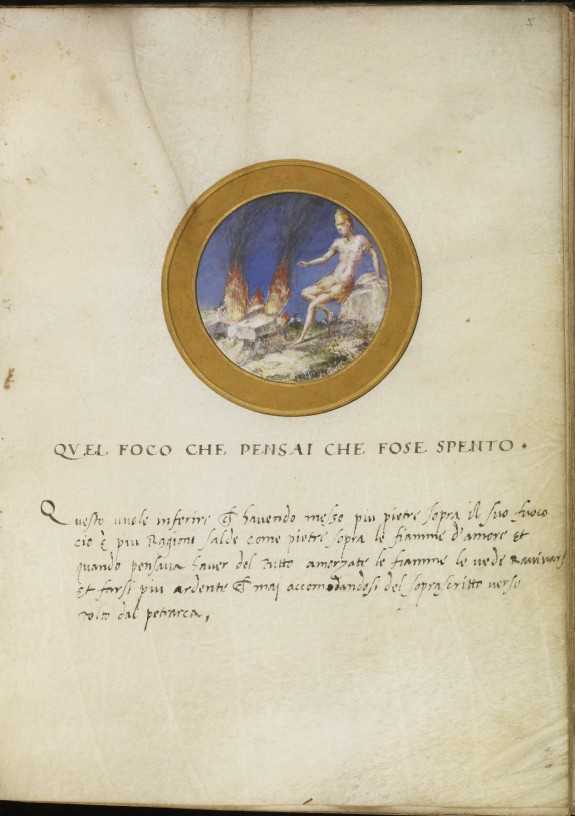 5
QVEL FOCO CHE PENSAI CHE FOSE SPENTO.
Questo vuole inferire che havendo messo piu pietre sopra il suo fuoco
cio è piu Ragioni salde come pietre sopra le fiamme d'amore et
quando pensava haver del tutto amorzate le fiamme le vede Ravivarsi
et farsi piu ardente che mai accomodandosi del soprascritto verso
tolto dal petrarca,